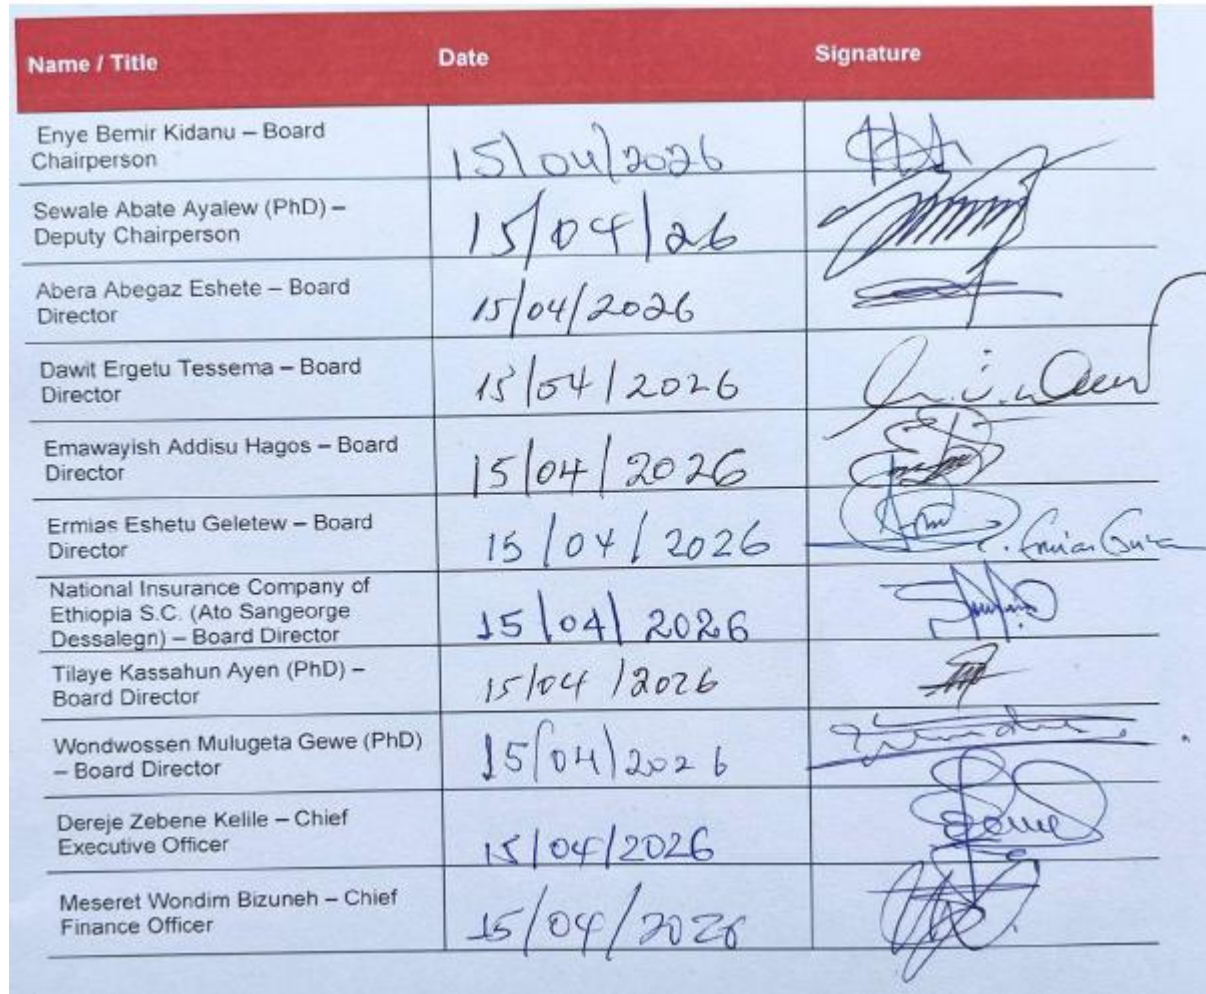 Name / Title Date Signature
Enye Bemir Kidanu – Board
Chairperson
15/04/2026
Sewale Abate Ayalew (PhD) –
Deputy Chairperson
15/04/26
Abera Abegaz Eshete – Board
Director
15/04/2026
Dawit Ergetu Tessema – Board
Director
15/04/2026
Emawayish Addisu Hagos – Board
Director
15/04/2026
Ermias Eshetu Geletew – Board
Director
15/04/2026
National Insurance Company of
Ethiopia S.C. (Ato Sangeorge
Dessalegn) – Board Director
15/04/2026
Tilaye Kassahun Ayen (PhD) –
Board Director
15/04/2026
Wondwossen Mulugeta Gewe (PhD)
– Board Director
15/04/2026
Dereje Zebene Kelile – Chief
Executive Officer
15/04/2026
Meseret Wondim Bizuneh – Chief
Finance Officer
15/04/2026